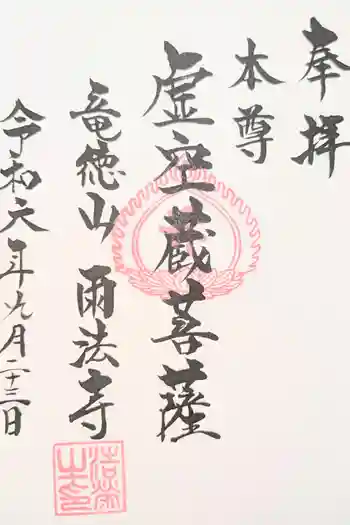 奉拝
本尊
虚空蔵菩薩
竜徳山 雨法寺
令和六年九月二十三日